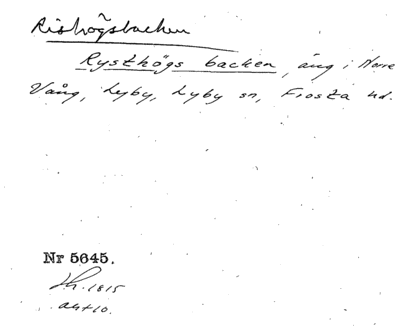 Rishögsbacken
Rysthögs backen, äng i Norre
Vång, Lyby, Lyby sn, Frosta hd.
Nr 5645.
1815
akt 10.